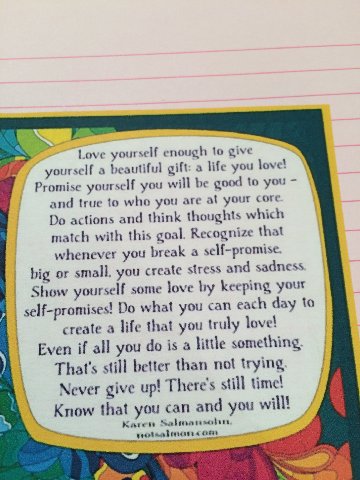 Love yourself enough to give
yourself a beautiful gift: a life you love!
Promise yourself you will be good to you -
and true to who you are at your core.
Do actions and think thoughts which
match with this goal. Recognize that
whenever you break a self-promise,
big or small, you create stress and sadness.
Show yourself some love by keeping your
self-promises! Do what you can each day to
create a life that you truly love!
Even if all you do is a little something.
That's still better than not trying.
Never give up! There's still time!
Know that you can and you will!
Karen Salmansohn,
notsalmon.com